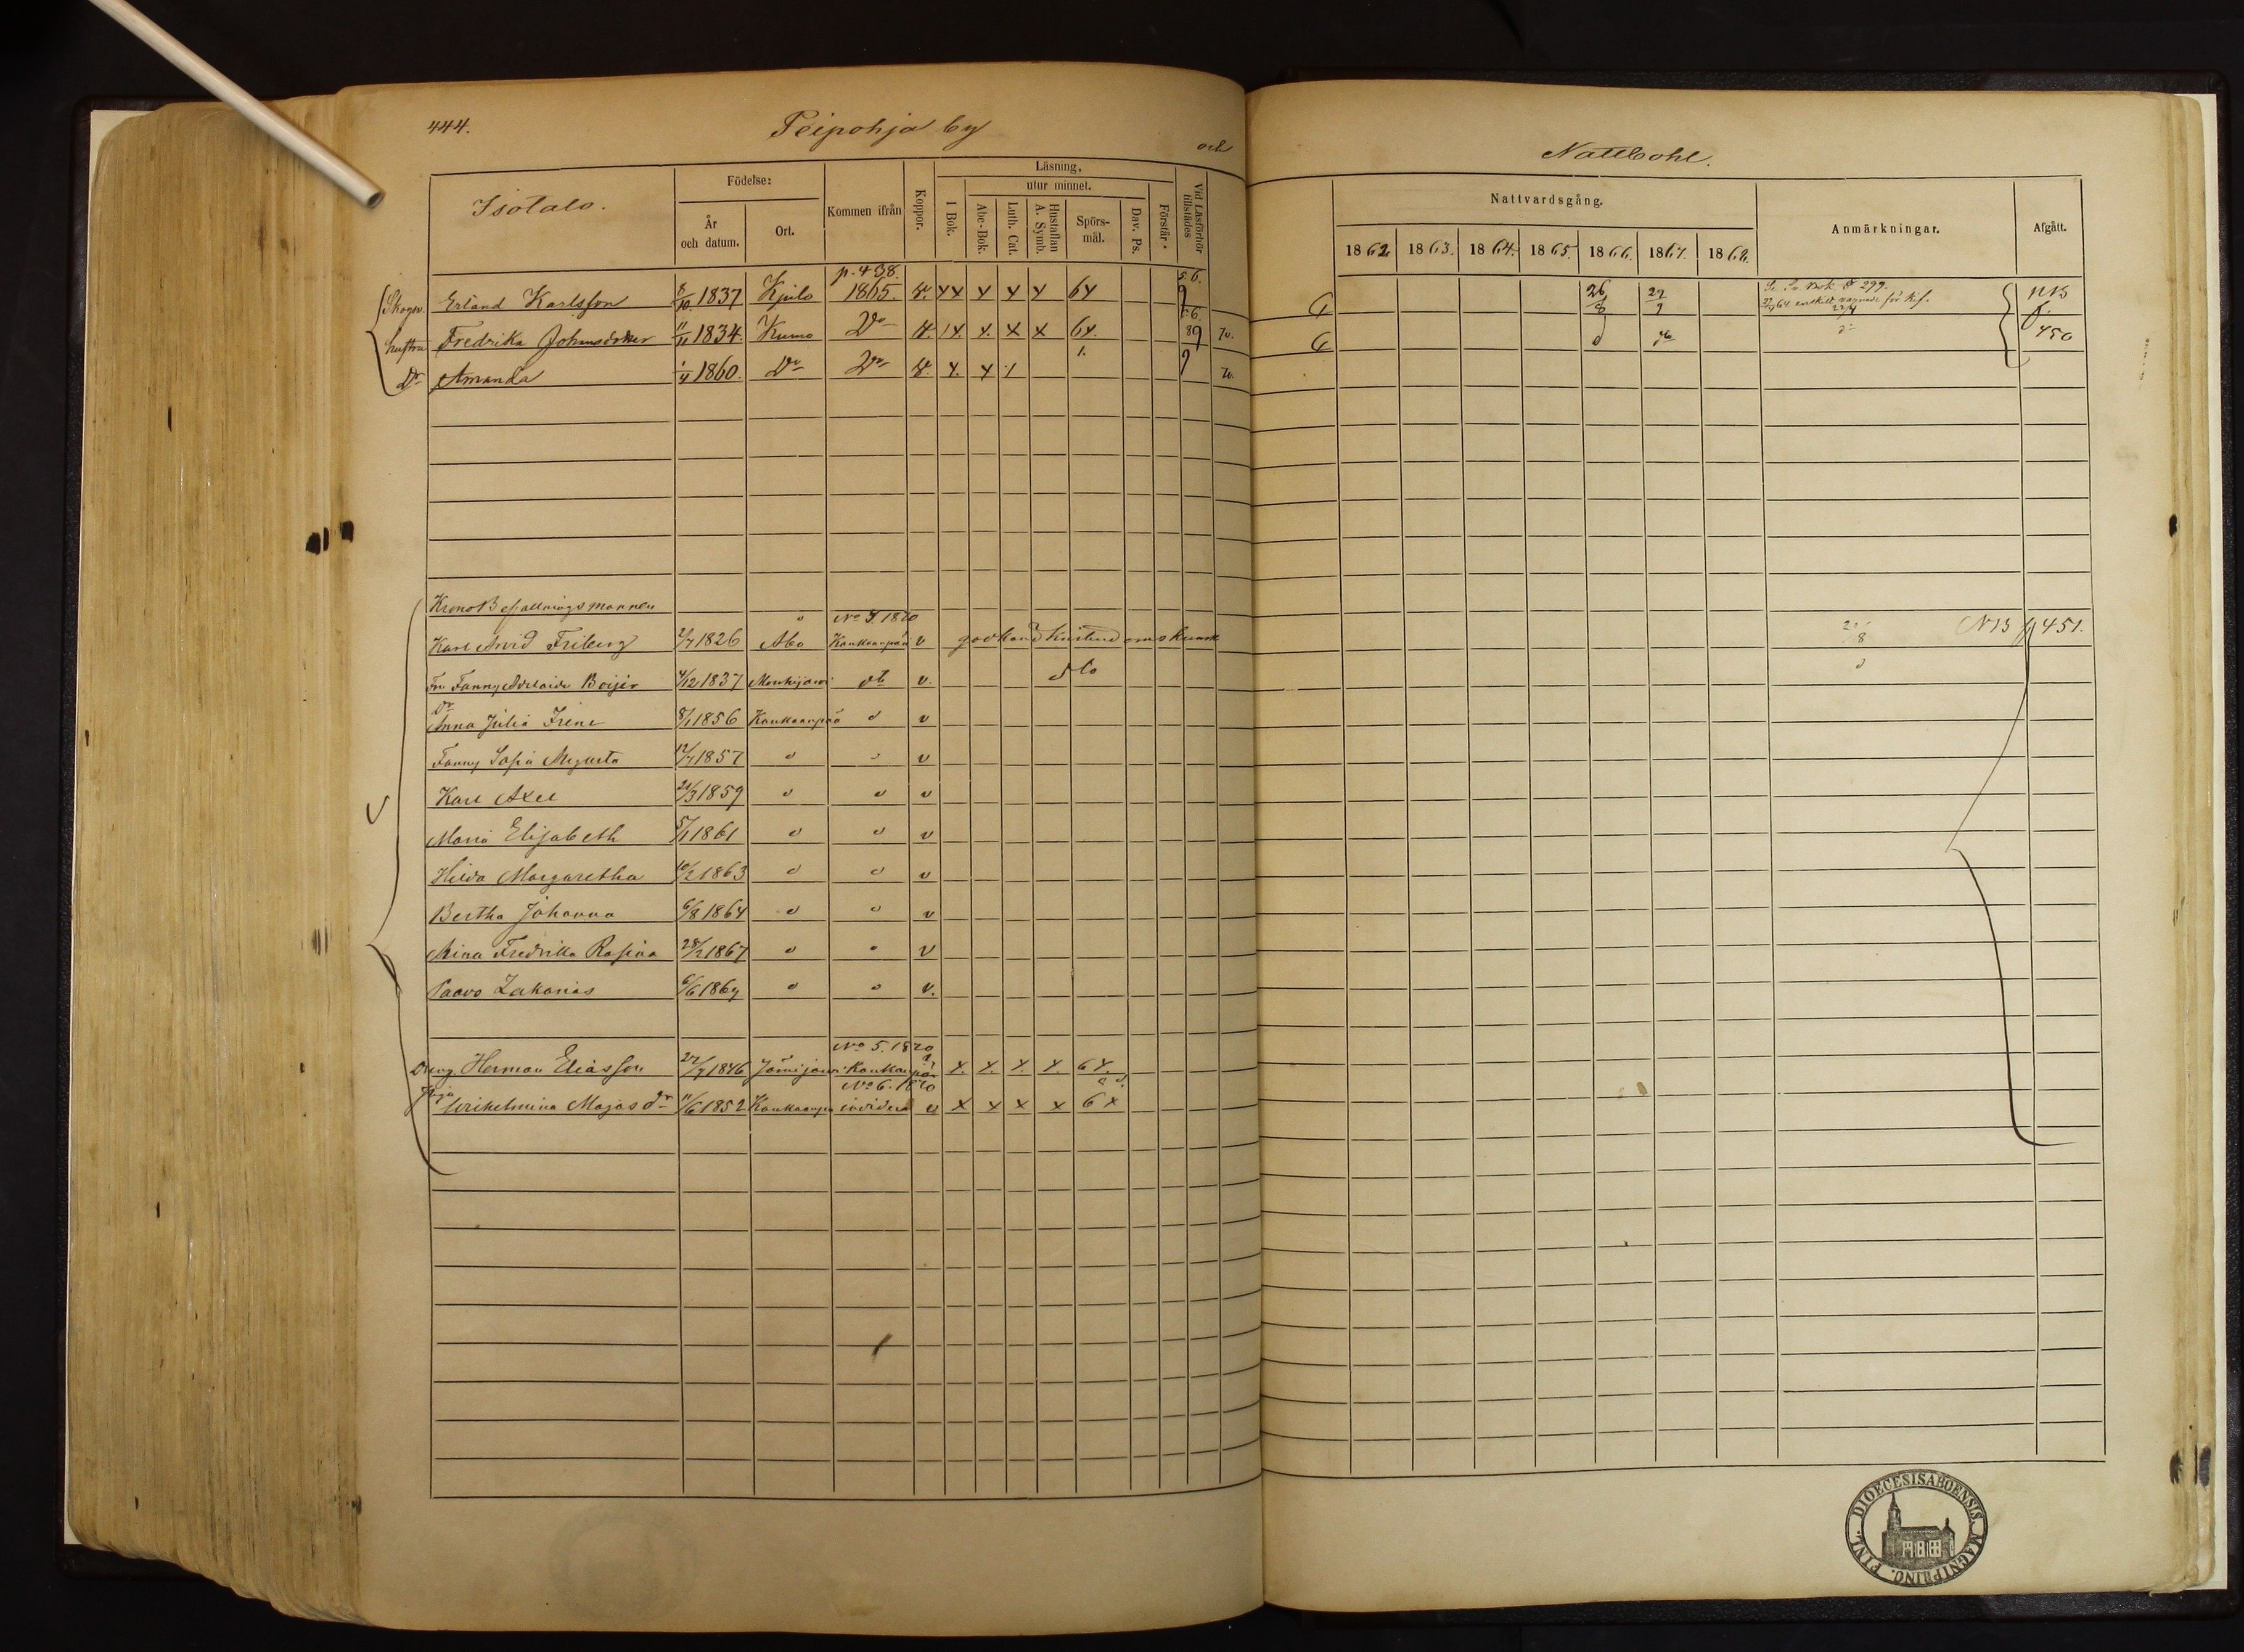 444. Peipohja by
och
Nattbohl.
Isotalo.
Födelse:
År och datum.
Ort.
Kommen ifrån
Koppor.
Läsning,
I Bok.
utur minnet.
Abc-Bok.
Luth. Cat.
Hustaflan A. Symb.
Spörs-mål.
Dav. Ps.
Förstår.
Vid Läsförhör tillstädes
Nattvardsgång.
1862 1863. 1864. 1865. 1866. 1867. 1868.
Anmärkningar.
Afgått.
p. 438.
Erland Karlsson 8/10 1837 Kjulo 1865. v. 26/8
hustru Fredrika Johansdotter 11/11 1834. Kumo Do 450
Dr Amanda 1/4 1860. Do Do v.
KronoBefallningsmannen
No 4. 1870
Karl Arvid Friberg 2/7 1826 Åbo Kankaanpää v godkänd kristendomskunsk 451.
Fru Fanny Adelaide Boijer 4/12 1837 Mouhijärvi do v. dto
Dr
Anna Julia Irene 8/1 1856 Kankaanpää d v
Fanny Sofia Augusta 12/7 1857 d d v
Karl Axel 21/3 1859 d d v
Maria Elisabeth 5/1 1861 d d v
Hilda Margaretha 10/2 1863 d d v
Bertha Johanna 6/8 1864 d d v
Mina Fredrika Rosina 28/2 1867 d d v
Paavo Zakarias 6/6 1869 d d v.
No 5. 1870
Dreng Herman Eliasson 27/7 1846 Jämijärvi Kankaanpää x. x. x. x. 6 x.
No 6. 1870
Piga Wilhelmina Majasdr 11/6 1852 Kankaanpää v x x x x 6 x
FINL. DIOECESIS ABOENSIS. MAGNI PRINC.